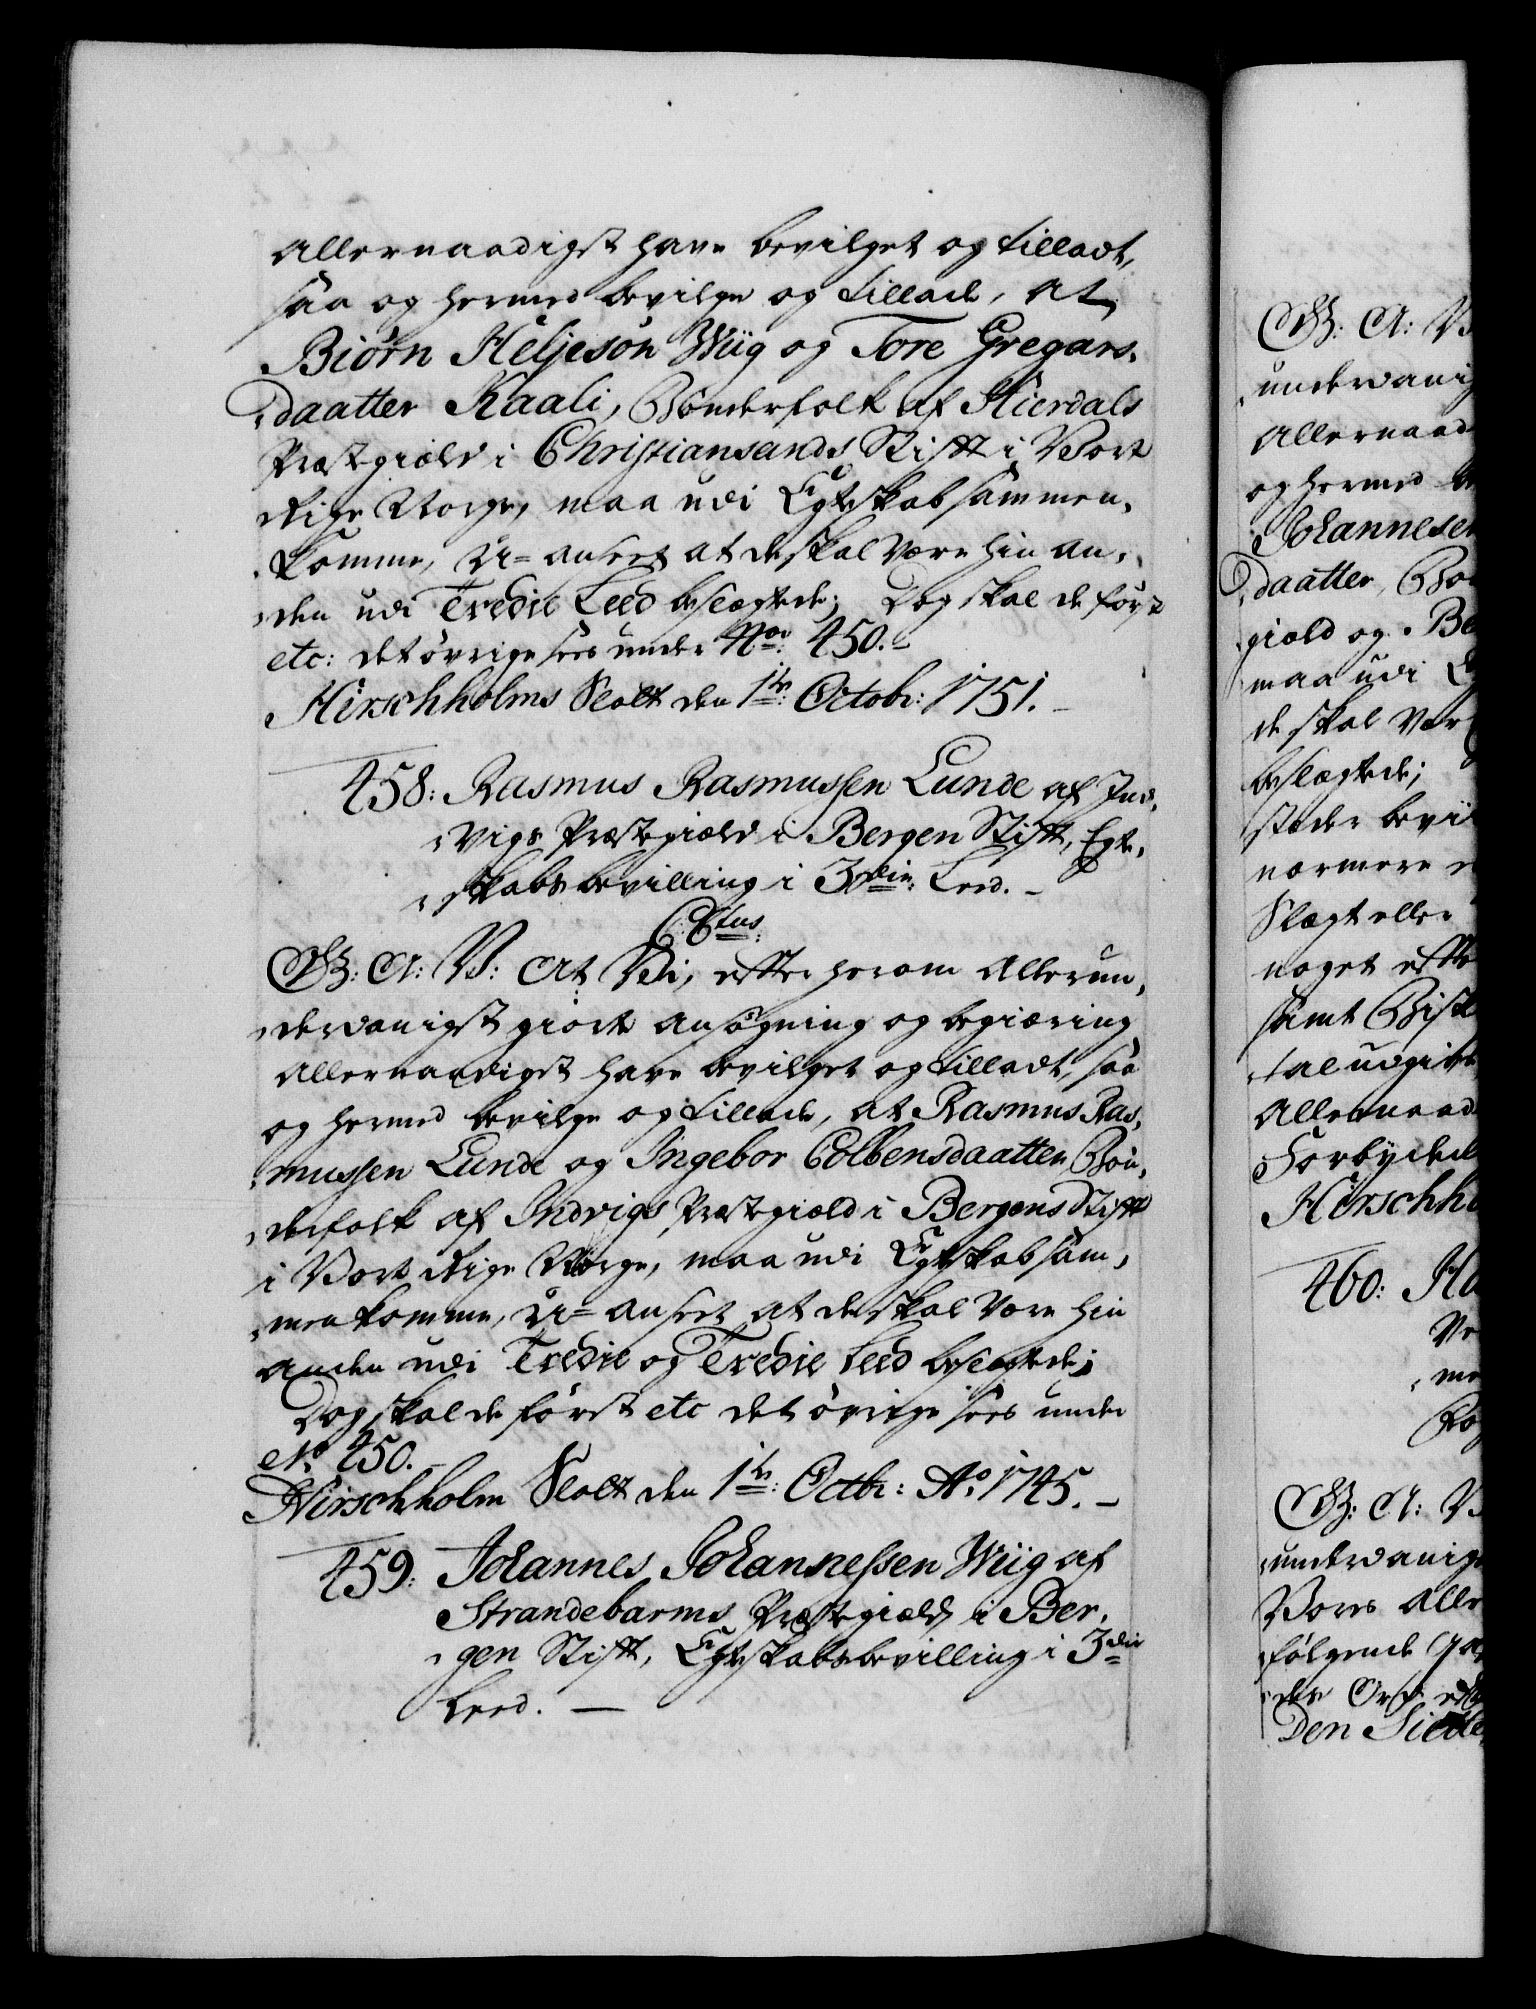 Allernaadigst have bevilget og tilladt,
saa og hermed bevilge og tillade, at
Biørn Heljesøn Wiig og Tore Gregars-
daatter Kaali, Bønderfolk af Hierdals
Præstegield i Christiansands Stift i Vort
Rige Norge, maa udi Egteskab sammen-
komme, U-anseet at de skal være hin an-
den udi Tredie Leed beslægtede; Dog skal de først
etc: det øvrige sees under No: 450.-
Hirschholms Slott den 1te: Octobr: 1751. -
458: Rasmus Rasmussen Lunde af Ind-
vigs Præstegield i Bergen Stift, Egte-
skabsbevilling i 3die: Leed. -
C: 6tus:
G: A: V: At Vi, efter herom Allerun-
derdanigst giorte ansøgning og begiæring
Allernaadigst have bevilget og tilladt, saa
og hermed bevilge og tillade, at Rasmus Ras-
mussen Lunde og Ingebor Colbensdaatter, Bøn-
derfolk af Indvigs Præstegield i Bergens Stift
i Vort Rige Norge, maa udi Egteskab sam-
men komme, U-anseet at de skal være hin
anden udi Tredie og Tredie Leed beslægtede;
Dog skal de først etc det øvrige sees under
No 450.-
Hirschholm Slott den 1te: Octbr: Ao: 1745. -
459: Johannes Johannessen Wiig af
Strandebarms Præstegield i Ber-
gen Stift, Egteskabsbevilling i 3die
Leed. -
A: V
underdanig
Allernaad
og hermed
Johannesen
daatter, Bøn
gield og Be
maa udi
de skal vær
beslægtede;
steder bevi
nærmere
Slægt eller
noget efter
samt Bisk
tal udgivet
Allernaad
Forbydend
Hirschho
460: Ha
Ve
me
G: A: V
underdanigst
Vores Alle
følgende
des Ord
Den Siette